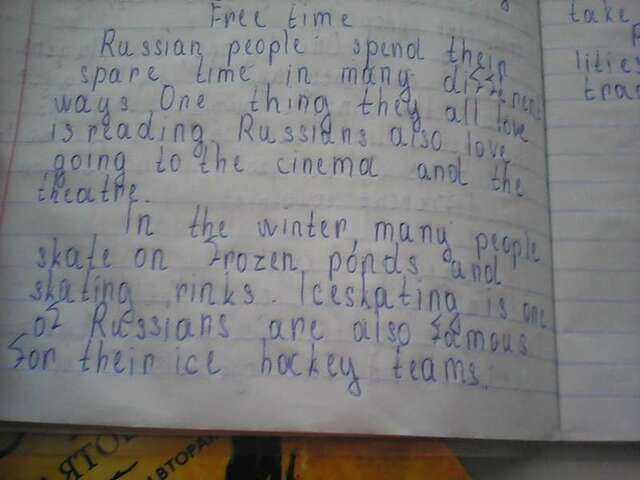 Free time
Russian people spend their
spare time in many different
ways One thing they all love
is reading. Russians also love
going to the cinema and the
theatre.
In the winter, many people
skate on frozen ponds and
skating rinks. Iceskating is one
of Russians are also famous
for their ice hockey teams.
take
lities
tran
ЯТО
ВТОРАЯ